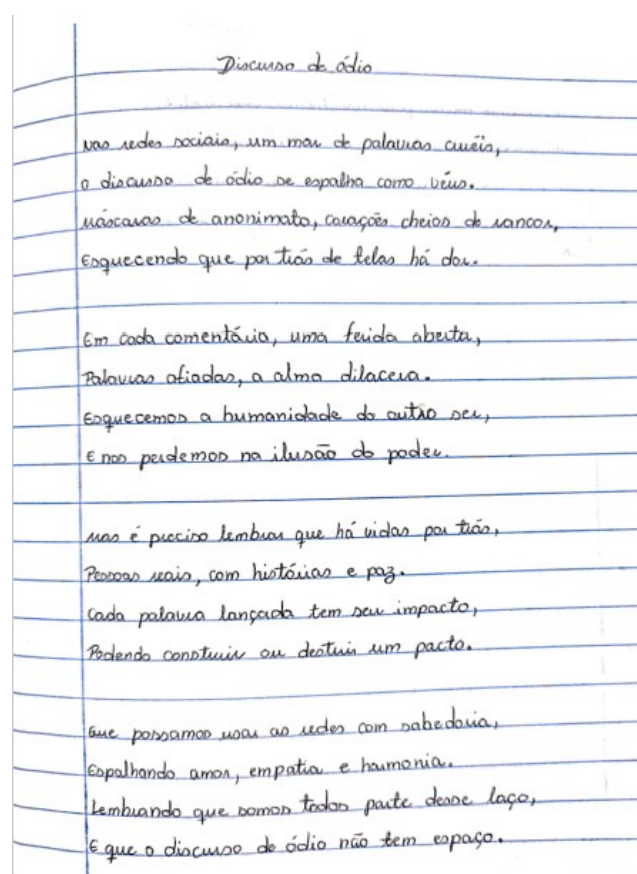 Discurso de ódio
nas redes sociais, um mar de palavras cruéis,
o discurso de ódio se espalha como véus.
máscaras de anonimato, corações cheios de rancor,
Esquecendo que por trás de telas há dor.
Em cada comentário, uma ferida aberta,
Palavras afiadas, a alma dilacera.
Esquecemos a humanidade do outro ser,
E nos perdemos na ilusão do poder.
mas é preciso lembrar que há vidas por trás,
Pessoas reais, com histórias e paz.
Cada palavra lançada tem seu impacto,
Podendo construir ou destruir um pacto.
Que possamos usar as redes com sabedoria,
Espalhando amor, empatia e harmonia.
Lembrando que somos todos parte desse laço,
E que o discurso de ódio não tem espaço.